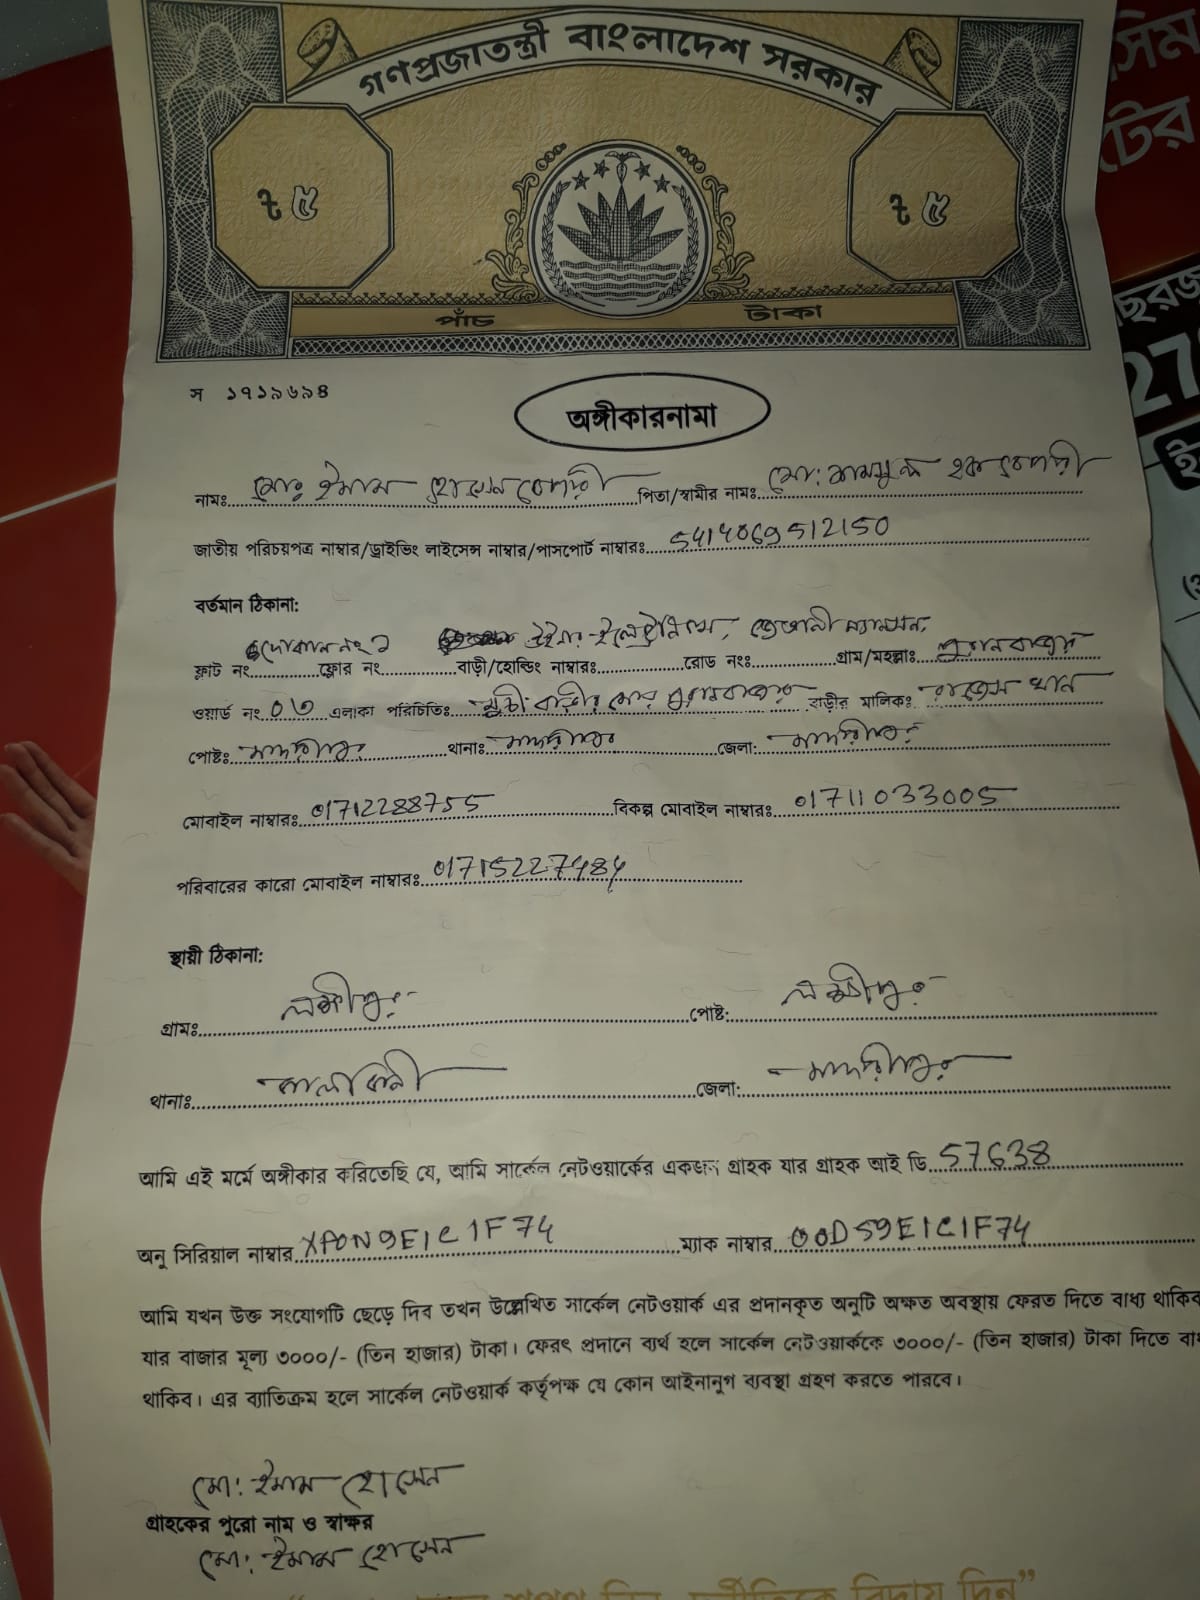 গণপ্রজাতন্ত্রী বাংলাদেশ সরকার
৳ ৫ ৳ ৫
পাঁচ টাকা
স ১৭১৯৬৯৪
অঙ্গীকারনামা
নামঃ মোঃ ইমাম হোসেন বেপারী পিতা/স্বামীর নামঃ মো: সামসুল হক বেপারী
জাতীয় পরিচয়পত্র নাম্বার/ড্রাইভিং লাইসেন্স নাম্বার/পাসপোর্ট নাম্বারঃ 5414069512150
বর্তমান ঠিকানা:
ফ্লাট নং দোকান নং ১ ফ্লোর নং বাড়ী/হোল্ডিং নাম্বারঃ রোড নংঃ গ্রাম/মহল্লাঃ পুরানবাজার
ওয়ার্ড নং ০৩ এলাকা পরিচিতিঃ পুরানবাজার বাড়ীর মালিকঃ খান
পোষ্টঃ মাদারীপুর থানাঃ মাদারীপুর জেলা: মাদারীপুর
মোবাইল নাম্বারঃ 01712288755 বিকল্প মোবাইল নাম্বারঃ 01711033005
পরিবারের কারো মোবাইল নাম্বারঃ 01715227484
স্থায়ী ঠিকানা:
গ্রামঃ লক্ষীপুর পোষ্ট: লক্ষীপুর
থানাঃ কালকিনী জেলা: মাদারীপুর
আমি এই মর্মে অঙ্গীকার করিতেছি যে, আমি সার্কেল নেটওয়ার্কের একজন গ্রাহক যার গ্রাহক আই ডি 57638
অনু সিরিয়াল নাম্বার XPON9E1C1F74 ম্যাক নাম্বার 00D59E1C1F74
আমি যখন উক্ত সংযোগটি ছেড়ে দিব তখন উল্লেখিত সার্কেল নেটওয়ার্ক এর প্রদানকৃত অনুটি অক্ষত অবস্থায় ফেরত দিতে বাধ্য থাকিব
যার বাজার মূল্য ৩০০০/- (তিন হাজার) টাকা। ফেরৎ প্রদানে ব্যর্থ হলে সার্কেল নেটওয়ার্ককে ৩০০০/- (তিন হাজার) টাকা দিতে
থাকিব। এর ব্যাতিক্রম হলে সার্কেল নেটওয়ার্ক কর্তৃপক্ষ যে কোন আইনানুগ ব্যবস্থা গ্রহণ করতে পারবে।
মো: ইমাম হোসেন
গ্রাহকের পুরো নাম ও স্বাক্ষর
মো: ইমাম হোসেন